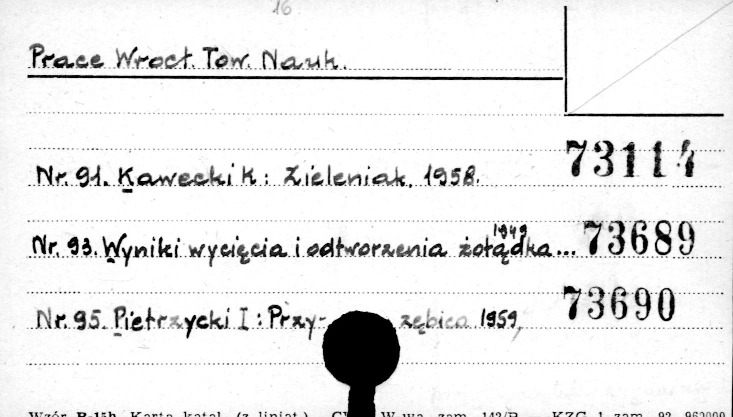 16
Prace Wrocł. Tow. Nauk.
Nr. 91. Kawecki K: Zieleniak. 1958. 73114
1949
Nr. 93. Wyniki wycięcia i odtworzenia żołądka... 73689
Nr. 95. Pietrzycki I: Przy- zębica 1959, 73690
Wzór B-15h Karta katal. (z liniat.) W-wa zam. 142/B KZG 1 zam. 92